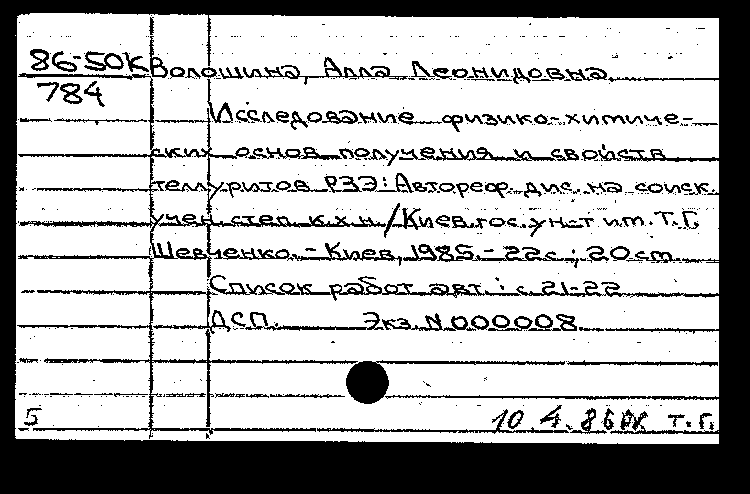 86-50К Волошина, Алла Леонидовна.
784
Исследование физико-химиче-
ских основ получения и свойств
теллуритов РЗЭ: Автореф. дис. на соиск.
учен. степ. к.х.н. / Киев. гос. ун-т им. Т.Г.
Шевченко. - Киев, 1985. - 22с.; 20 см.
Список работ авт.: с. 21-22
ДСП. Экз. N 000008
5 10.4.86 Т.Г.